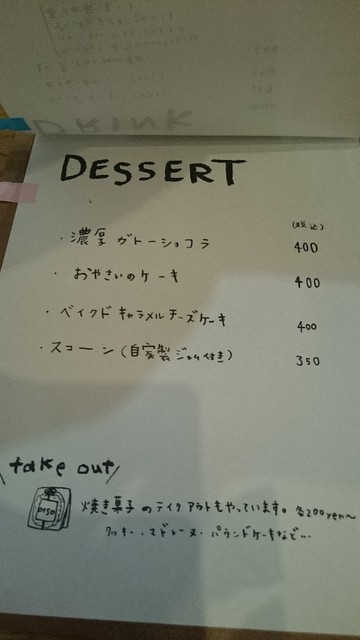 DRINK
DESSERT
(税込)
・濃厚 ガトーショコラ 400
・おやさいのケーキ 400
・ベイクド キャラメル チーズケーキ 400
・スコーン(自家製ジャム付き) 350
\take out/
焼き菓子のテイクアウトもやっています。各200yen〜
クッキー・マドレーヌ・パウンドケーキなど…